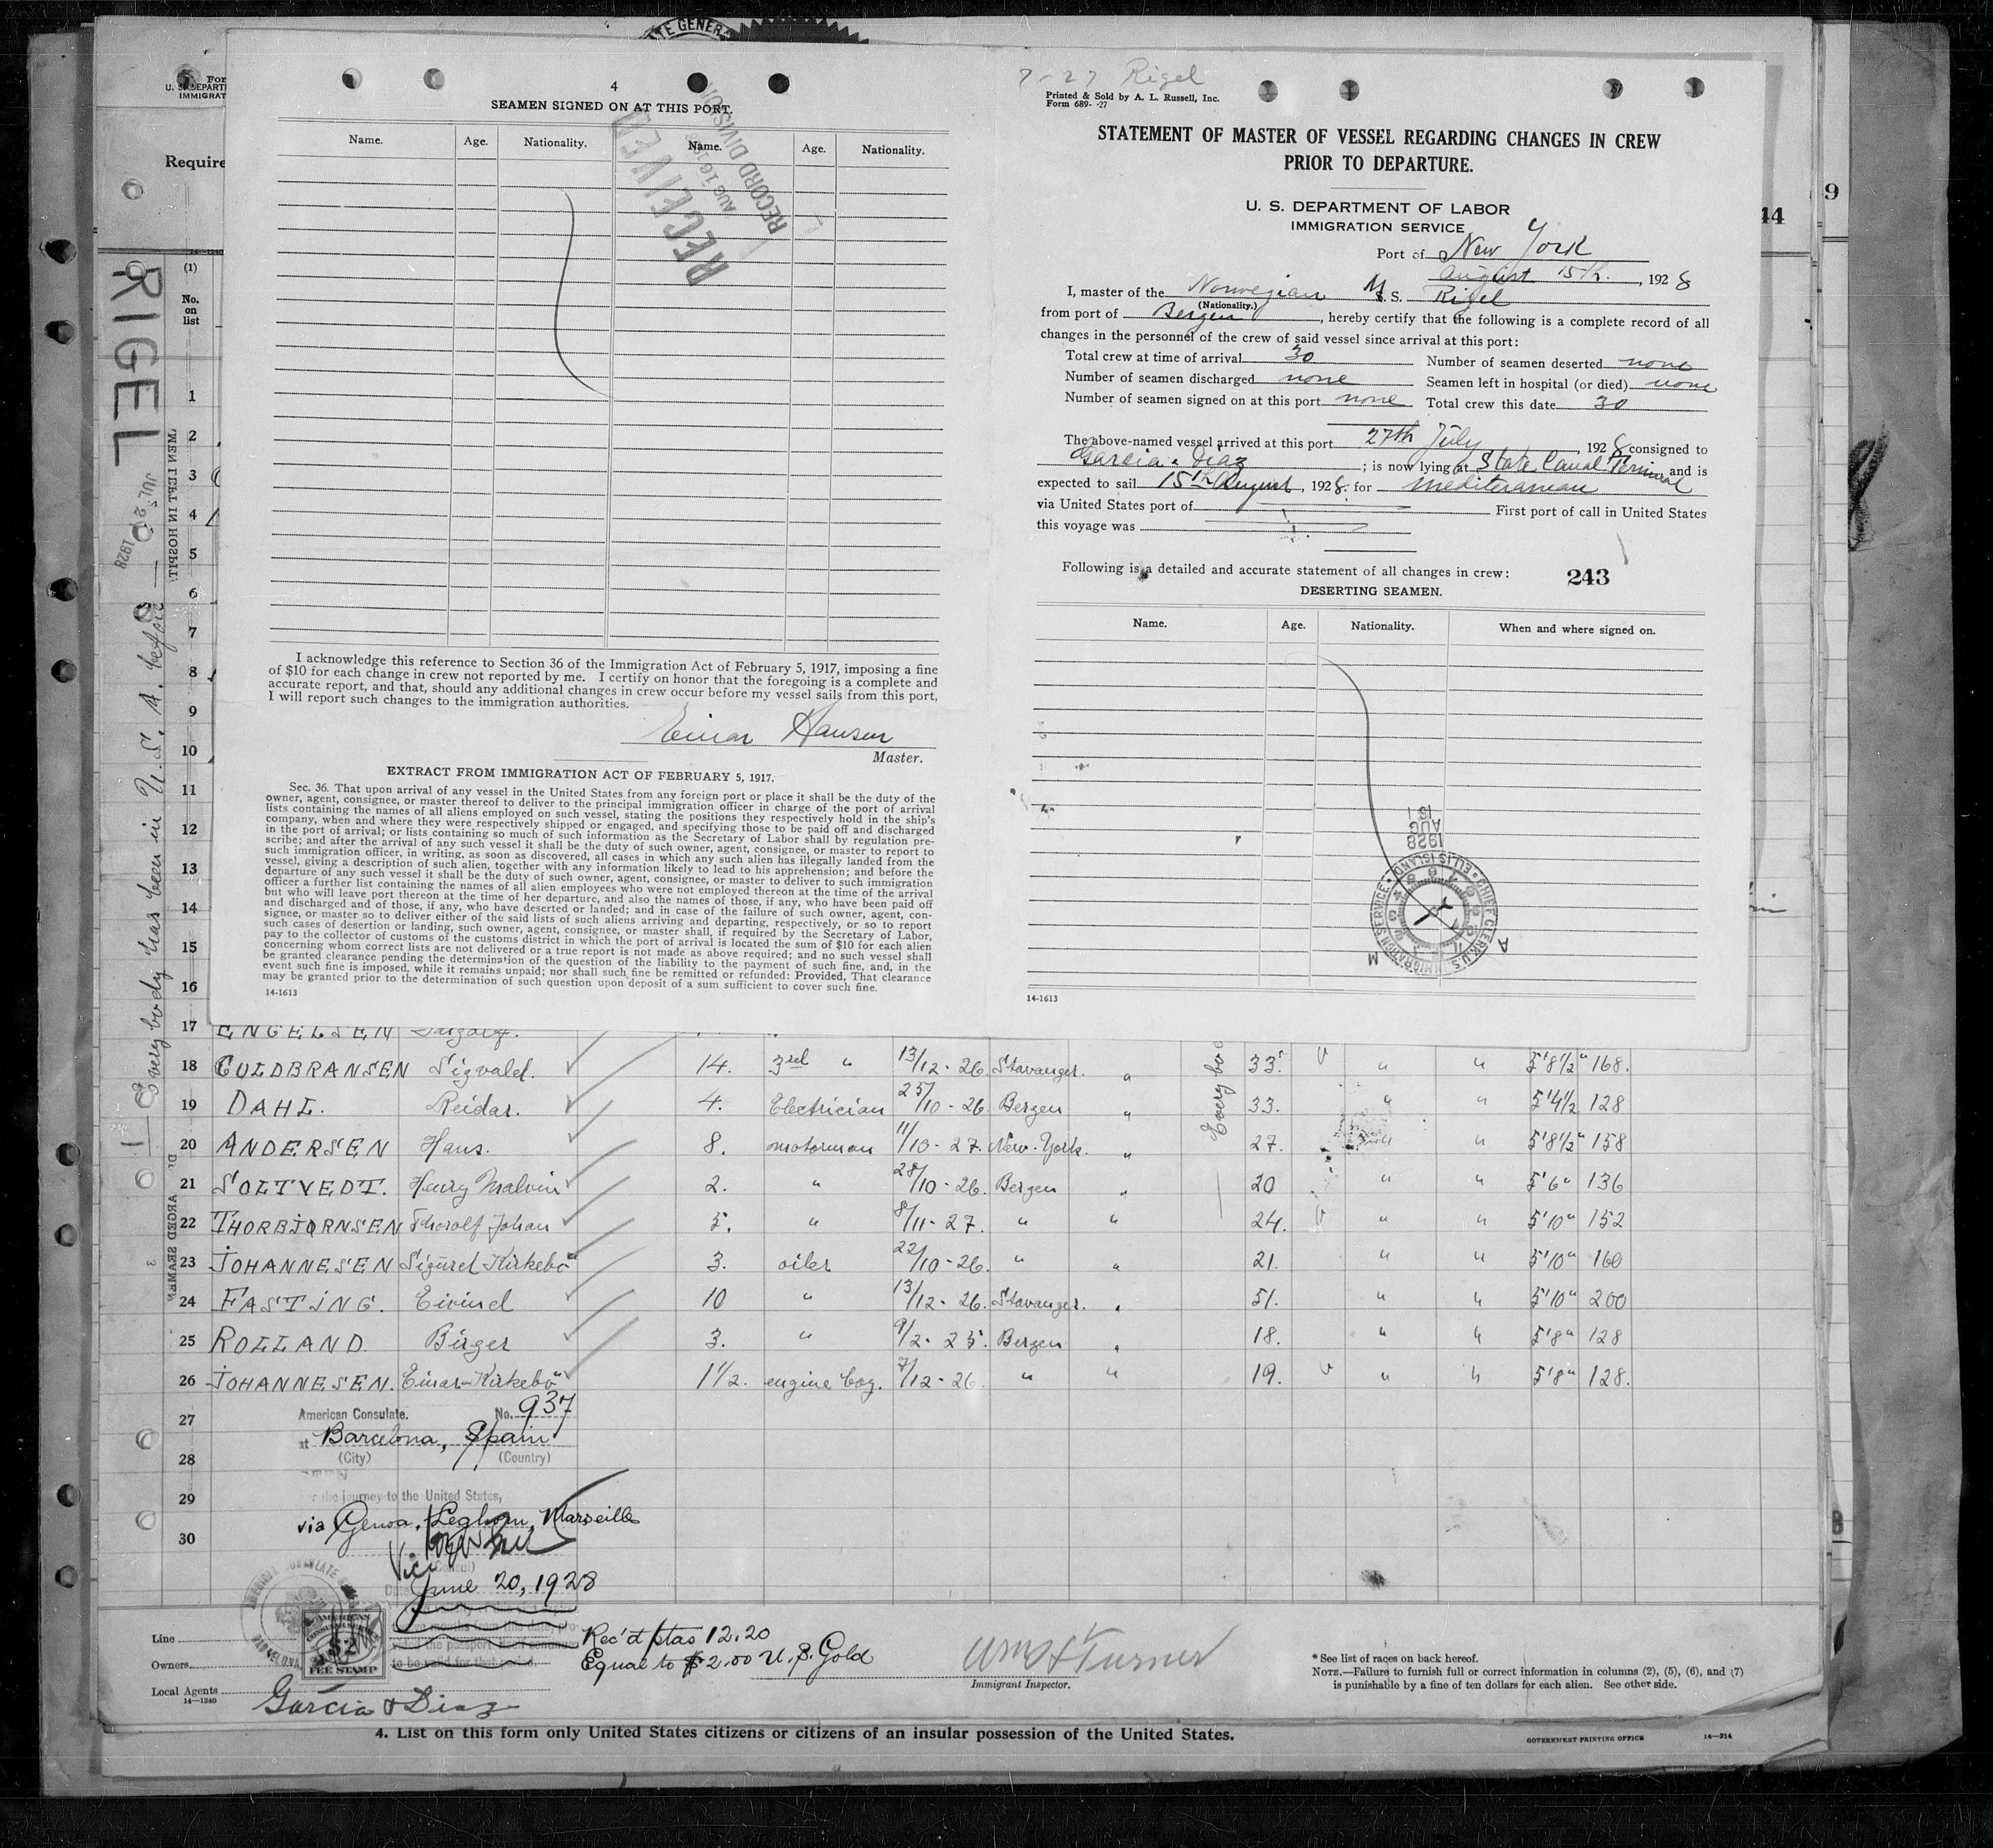 TE GENER
For
U. S. DEPARTM
IMMIGRAT
Require
14-1240
(1)
No.
on
list
RIGEL
JUL 2 1928
Everybody has been in U.S.A. before
4
SEAMEN SIGNED ON AT THIS PORT.
Name. Age. Nationality. Name. Age. Nationality.
RECEIVED
AUG 16 19
RECORD DIVISION
I acknowledge this reference to Section 36 of the Immigration Act of February 5, 1917, imposing a fine
of $10 for each change in crew not reported by me. I certify on honor that the foregoing is a complete and
accurate report, and that, should any additional changes in crew occur before my vessel sails from this port,
I will report such changes to the immigration authorities.
Einar Hansen
Master.
EXTRACT FROM IMMIGRATION ACT OF FEBRUARY 5, 1917.
Sec. 36. That upon arrival of any vessel in the United States from any foreign port or place it shall be the duty of the
owner, agent, consignee, or master thereof to deliver to the principal immigration officer in charge of the port of arrival
lists containing the names of all aliens employed on such vessel, stating the positions they respectively hold in the ship's
company, when and where they were respectively shipped or engaged, and specifying those to be paid off and discharged
in the port of arrival; or lists containing so much of such information as the Secretary of Labor shall by regulation pre-
scribe; and after the arrival of any such vessel it shall be the duty of such owner, agent, consignee, or master to report to
such immigration officer, in writing, as soon as discovered, all cases in which any such alien has illegally landed from the
vessel, giving a description of such alien, together with any information likely to lead to his apprehension; and before the
departure of any such vessel it shall be the duty of such owner, agent, consignee, or master to deliver to such immigration
officer a further list containing the names of all alien employees who were not employed thereon at the time of the arrival
but who will leave port thereon at the time of her departure, and also the names of those, if any, who have been paid off
and discharged and of those, if any, who have deserted or landed; and in case of the failure of such owner, agent, con-
signee, or master so to deliver either of the said lists of such aliens arriving and departing, respectively, or so to report
such cases of desertion or landing, such owner, agent, consignee, or master shall, if required by the Secretary of Labor,
pay to the collector of customs of the customs district in which the port of arrival is located the sum of $10 for each alien
concerning whom correct lists are not delivered or a true report is not made as above required; and no such vessel shall
be granted clearance pending the determination of the question of the liability to the payment of such fine, and, in the
event such fine is imposed, while it remains unpaid; nor shall such fine be remitted or refunded: Provided, That clearance
may be granted prior to the determination of such question upon deposit of a sum sufficient to cover such fine.
14-1613
7-27 Rigel
Printed & Sold by A. L. Russell, Inc.
Form 689- -27
STATEMENT OF MASTER OF VESSEL REGARDING CHANGES IN CREW
PRIOR TO DEPARTURE.
U. S. DEPARTMENT OF LABOR
IMMIGRATION SERVICE
Port of New York
August 15th, 1928
I, master of the Norwegian M. S. Rigel
(Nationality.)
from port of Bergen, hereby certify that the following is a complete record of all
changes in the personnel of the crew of said vessel since arrival at this port:
Total crew at time of arrival 30 Number of seamen deserted none
Number of seamen discharged none Seamen left in hospital (or died) none
Number of seamen signed on at this port none Total crew this date 30
The above-named vessel arrived at this port 27th July, 1928 consigned to
Garcia & Diaz; is now lying at State Canal Terminal and is
expected to sail 15th August, 1928 for mediteranian
via United States port of First port of call in United States
this voyage was
Following is a detailed and accurate statement of all changes in crew: 243
DESERTING SEAMEN.
Name. Age. Nationality. When and where signed on.
1928
AUG
CHIEF CLERK U.S. IMMIGRATION SERVICE ELLIS ISLAND
A M
14-1613
44
9
1
2
3
4
5
6
7
8
9
10
11
12
13
14
15
16
17 ENGELSEN
18 GULDBRANSEN Sigvald. 14. 3rd " 13/12-26. Stavanger. " 33. " " 5'8½" 168.
19 DAHL. Reidar. 4. Electrician 25/10-26 Bergen " 33. " " 5'4½ 128
20 ANDERSEN Hans. 8. motorman 11/10-27. New-York. " 27. " " 5'8½" 158
21 SOLTVEDT. Harry Malvin 2. " 28/10-26. Bergen " 20 " " 5'6" 136
22 THORBJORNSEN Thorolf Johan 5. " 8/11-27. " " 24. " " 5'10" 152
23 JOHANNESEN Sigurd Kirkebö 3. oiler 22/10-26. " " 21. " " 5'10" 160
24 FASTING. Eivind 10 " 13/12-26. Stavanger. " 51. " " 5'10" 200
25 ROLLAND. Birger 3. " 9/2-25. Bergen " 18. " " 5'8" 128
26 JOHANNESEN. Einar-Kirkebö 1½. engine boy. 7/12-26 " " 19. " " 5'8" 128.
27
28
29
30
American Consulate. No. 937
at Barcelona, Spain
(City) (Country)
journey to the United States,
via Genoa, Leghorn, Marseille
Vice
June 20, 1928
AMERICAN
CONSULAR SERVICE
$2
FEE STAMP
to be valid for that period.
Rec'd ptas 12.20
Equal to $2.00 U.S. Gold
Line
Owners
Local Agents
14-1240
Garcia & Diaz
Wm H Turner
Immigrant Inspector.
* See list of races on back hereof.
NOTE.—Failure to furnish full or correct information in columns (2), (5), (6), and (7)
is punishable by a fine of ten dollars for each alien. See other side.
4. List on this form only United States citizens or citizens of an insular possession of the United States.
GOVERNMENT PRINTING OFFICE 14-214